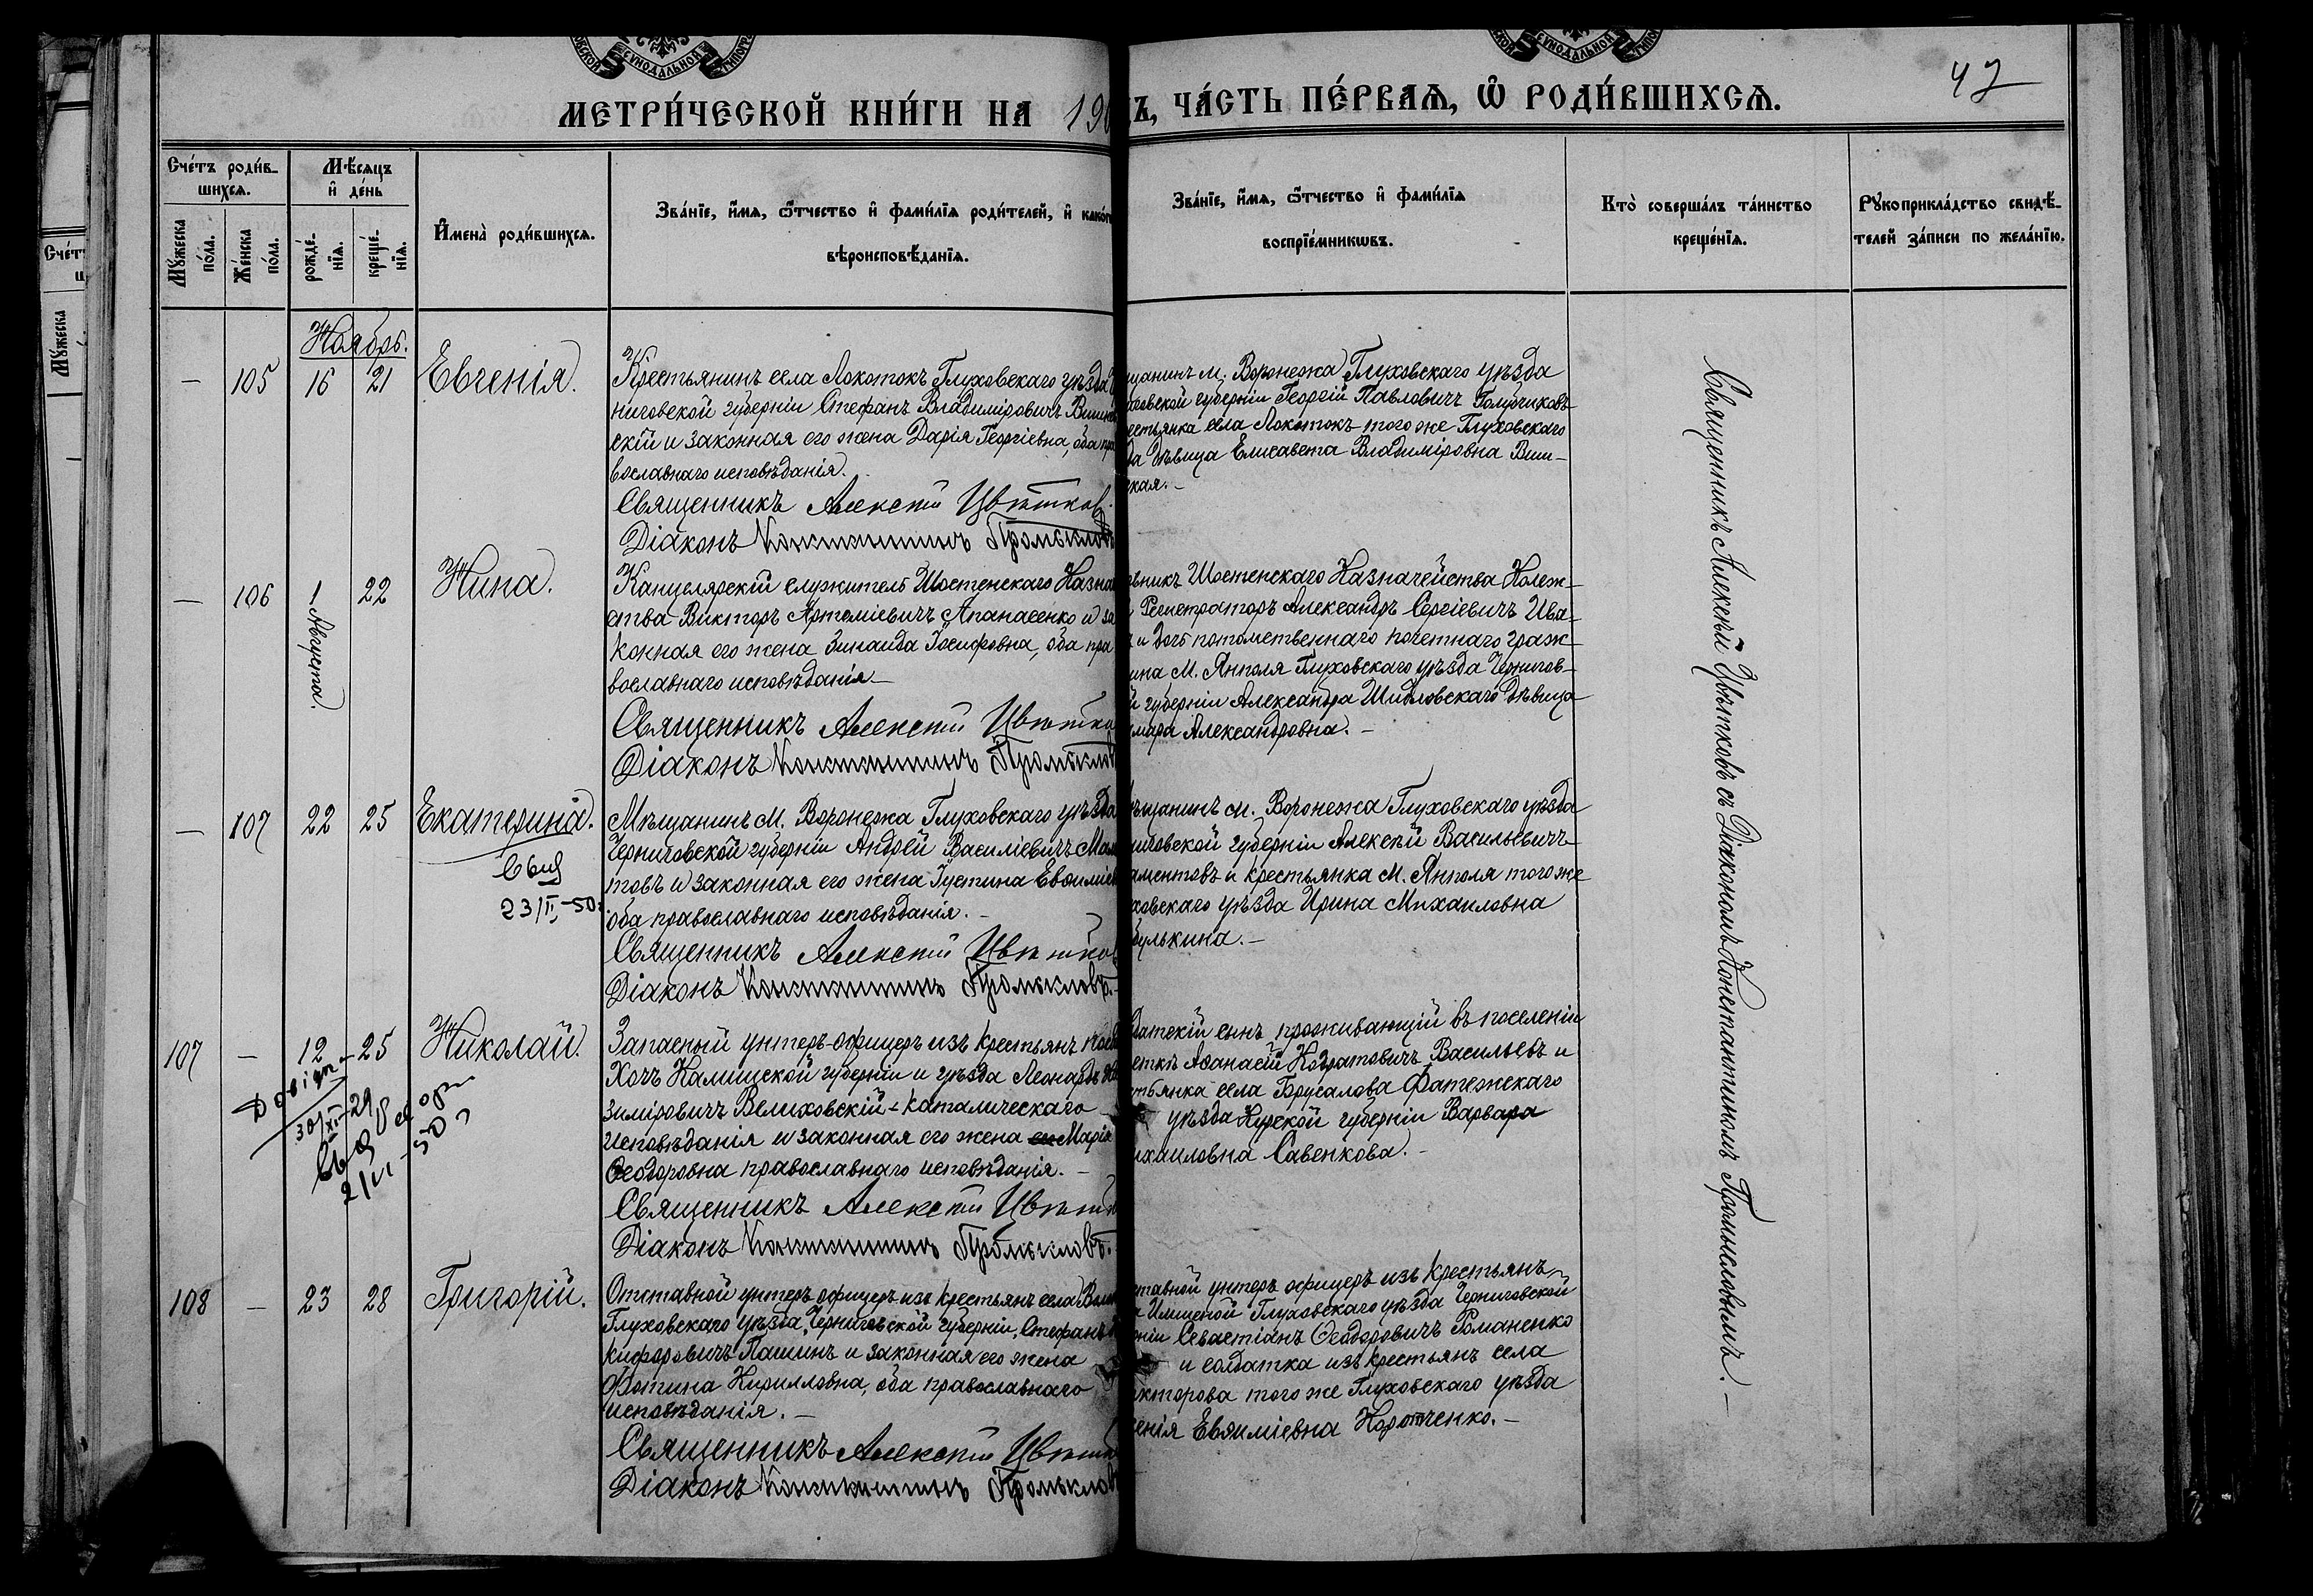 СУНОДАЛЬНОЙ
СУНОДАЛЬНОЙ
МЕТРИ́ЧЕСКОЙ КНИ́ГИ НА 190
Ъ, ЧА́СТЬ ПЕ́РВАѦ, Ѡ҆ РОДИ́ВШИХСѦ.
47
Сче́тъ роди́в-
шихсѧ.
Мꙋ́жеска по́ла.
Же́нска по́ла.
Мѣ́сѧцъ
и҆ де́нь
рожде́-
нїѧ.
креще́-
нїѧ.
И҆мена̀ роди́вшихсѧ.
Зва́нїе, и҆́мѧ, ѻ҆́тчество и҆ фами́лїѧ роди́телей, и҆ како́г
вѣроисповѣ́данїѧ.
Зва́нїе, и҆́мѧ, ѻ҆́тчество и҆ фами́лїѧ
воспрїе́мникѡвъ.
Кто̀ соверша́лъ та́инство
креще́нїѧ.
Рꙋкоприкла́дство свидѣ́-
телей за́писи по жела́нїю.
Ноябрь.
— 105 16 21 Евгенія.
Крестьянинъ села Локотокъ Глуховскаго уѣзда Ч
ниговской губерніи Стефанъ Владиміровичъ Вишнев
скій и законная его жена Дарія Георгіевна, оба пра
вославнаго исповѣданія.
Священникъ Алексій Цвѣтков
Діаконъ Константинъ Промыслов
щанинъ м. Воронежа Глуховскаго уѣзда
говской губерніи Георгій Павловичъ Голубчиковъ
естьянка села Локотокъ того же Глуховскаго
да дѣвица Елисавета Владиміровна Виш-
ская. —
— 106 1 Августа. 22 Нина.
Канцелярскій служитель Шостенскаго Казна
ства Викторъ Артеміевичъ Апанасенко и за
конная его жена Зинаида Іосифовна, оба пра
вославнаго исповѣданія. —
Священникъ Алексій Цвѣтко
Діаконъ Константинъ Промыслов
вникъ Шостенскаго Казначейства Колеж-
Регистраторъ Александръ Сергіевичъ Ива-
и дочь потомственнаго почетнаго граж-
ина М. Янполя Глуховскаго уѣзда Чернигов-
й губерніи Александра Шидловскаго дѣвица
мара Александровна. —
— 107 22 25 Екатерина.
23/II-50
Мѣщанинъ М. Воронежа Глуховскаго уѣзда
Черниговской губерніи Андрей Василіевичъ Мам
товъ и законная его жена Іустина Евѳиміев
оба православнаго исповѣданія. —
Священникъ Алексій Цвѣтко
Діаконъ Константинъ Промысловъ.
ѣщанинъ м. Воронежа Глуховскаго уѣзда
ниговской губерніи Алексѣй Васильевичъ
аментовъ и крестьянка М. Янполя того же
ховскаго уѣзда Ирина Михаиловна
булькина. —
107 — 12 25 Николай.
Запасный унтеръ-офицеръ изъ крестьянъ
Хочъ Калишской губерніи и уѣзда Леонардъ Ка
зиміровичъ Велиховскій - католическаго
исповѣданія и законная его жена Марія
Ѳеодоровна православнаго исповѣданія. —
Священникъ Алексій Цвѣтк
Діаконъ Константинъ Промысловъ.
датскій сынъ, проживающій въ поселеніи
Аѳанасій Кодратовичъ Васильевъ и
стьянка села Брусалова Фатежскаго
уѣзда Курской губерніи Варвара
ихаиловна Савенкова. —
108 — 23 28 Григорій.
Отставной унтеръ офицеръ изъ крестьянъ села
Глуховскаго уѣзда, Черниговской губерніи, Стефанъ
кифоровичъ Пашинъ и законная его жена
Фотина Кирилловна, оба православнаго
исповѣданія. —
Священникъ Алексій Цвѣтк
Діаконъ Константинъ Промыслов
ставной унтеръ офицеръ изъ крестьянъ
Глуховскаго уѣзда Черниговской
рніи Севастіанъ Ѳеодоровичъ Романенко
и солдатка изъ крестьянъ села
икторова того же Глуховскаго уѣзда
сенія Евѳиміевна Коротченко. —
Священникъ Алексѣй Цвѣтковъ съ Діакономъ Константиномъ Промысловымъ. —